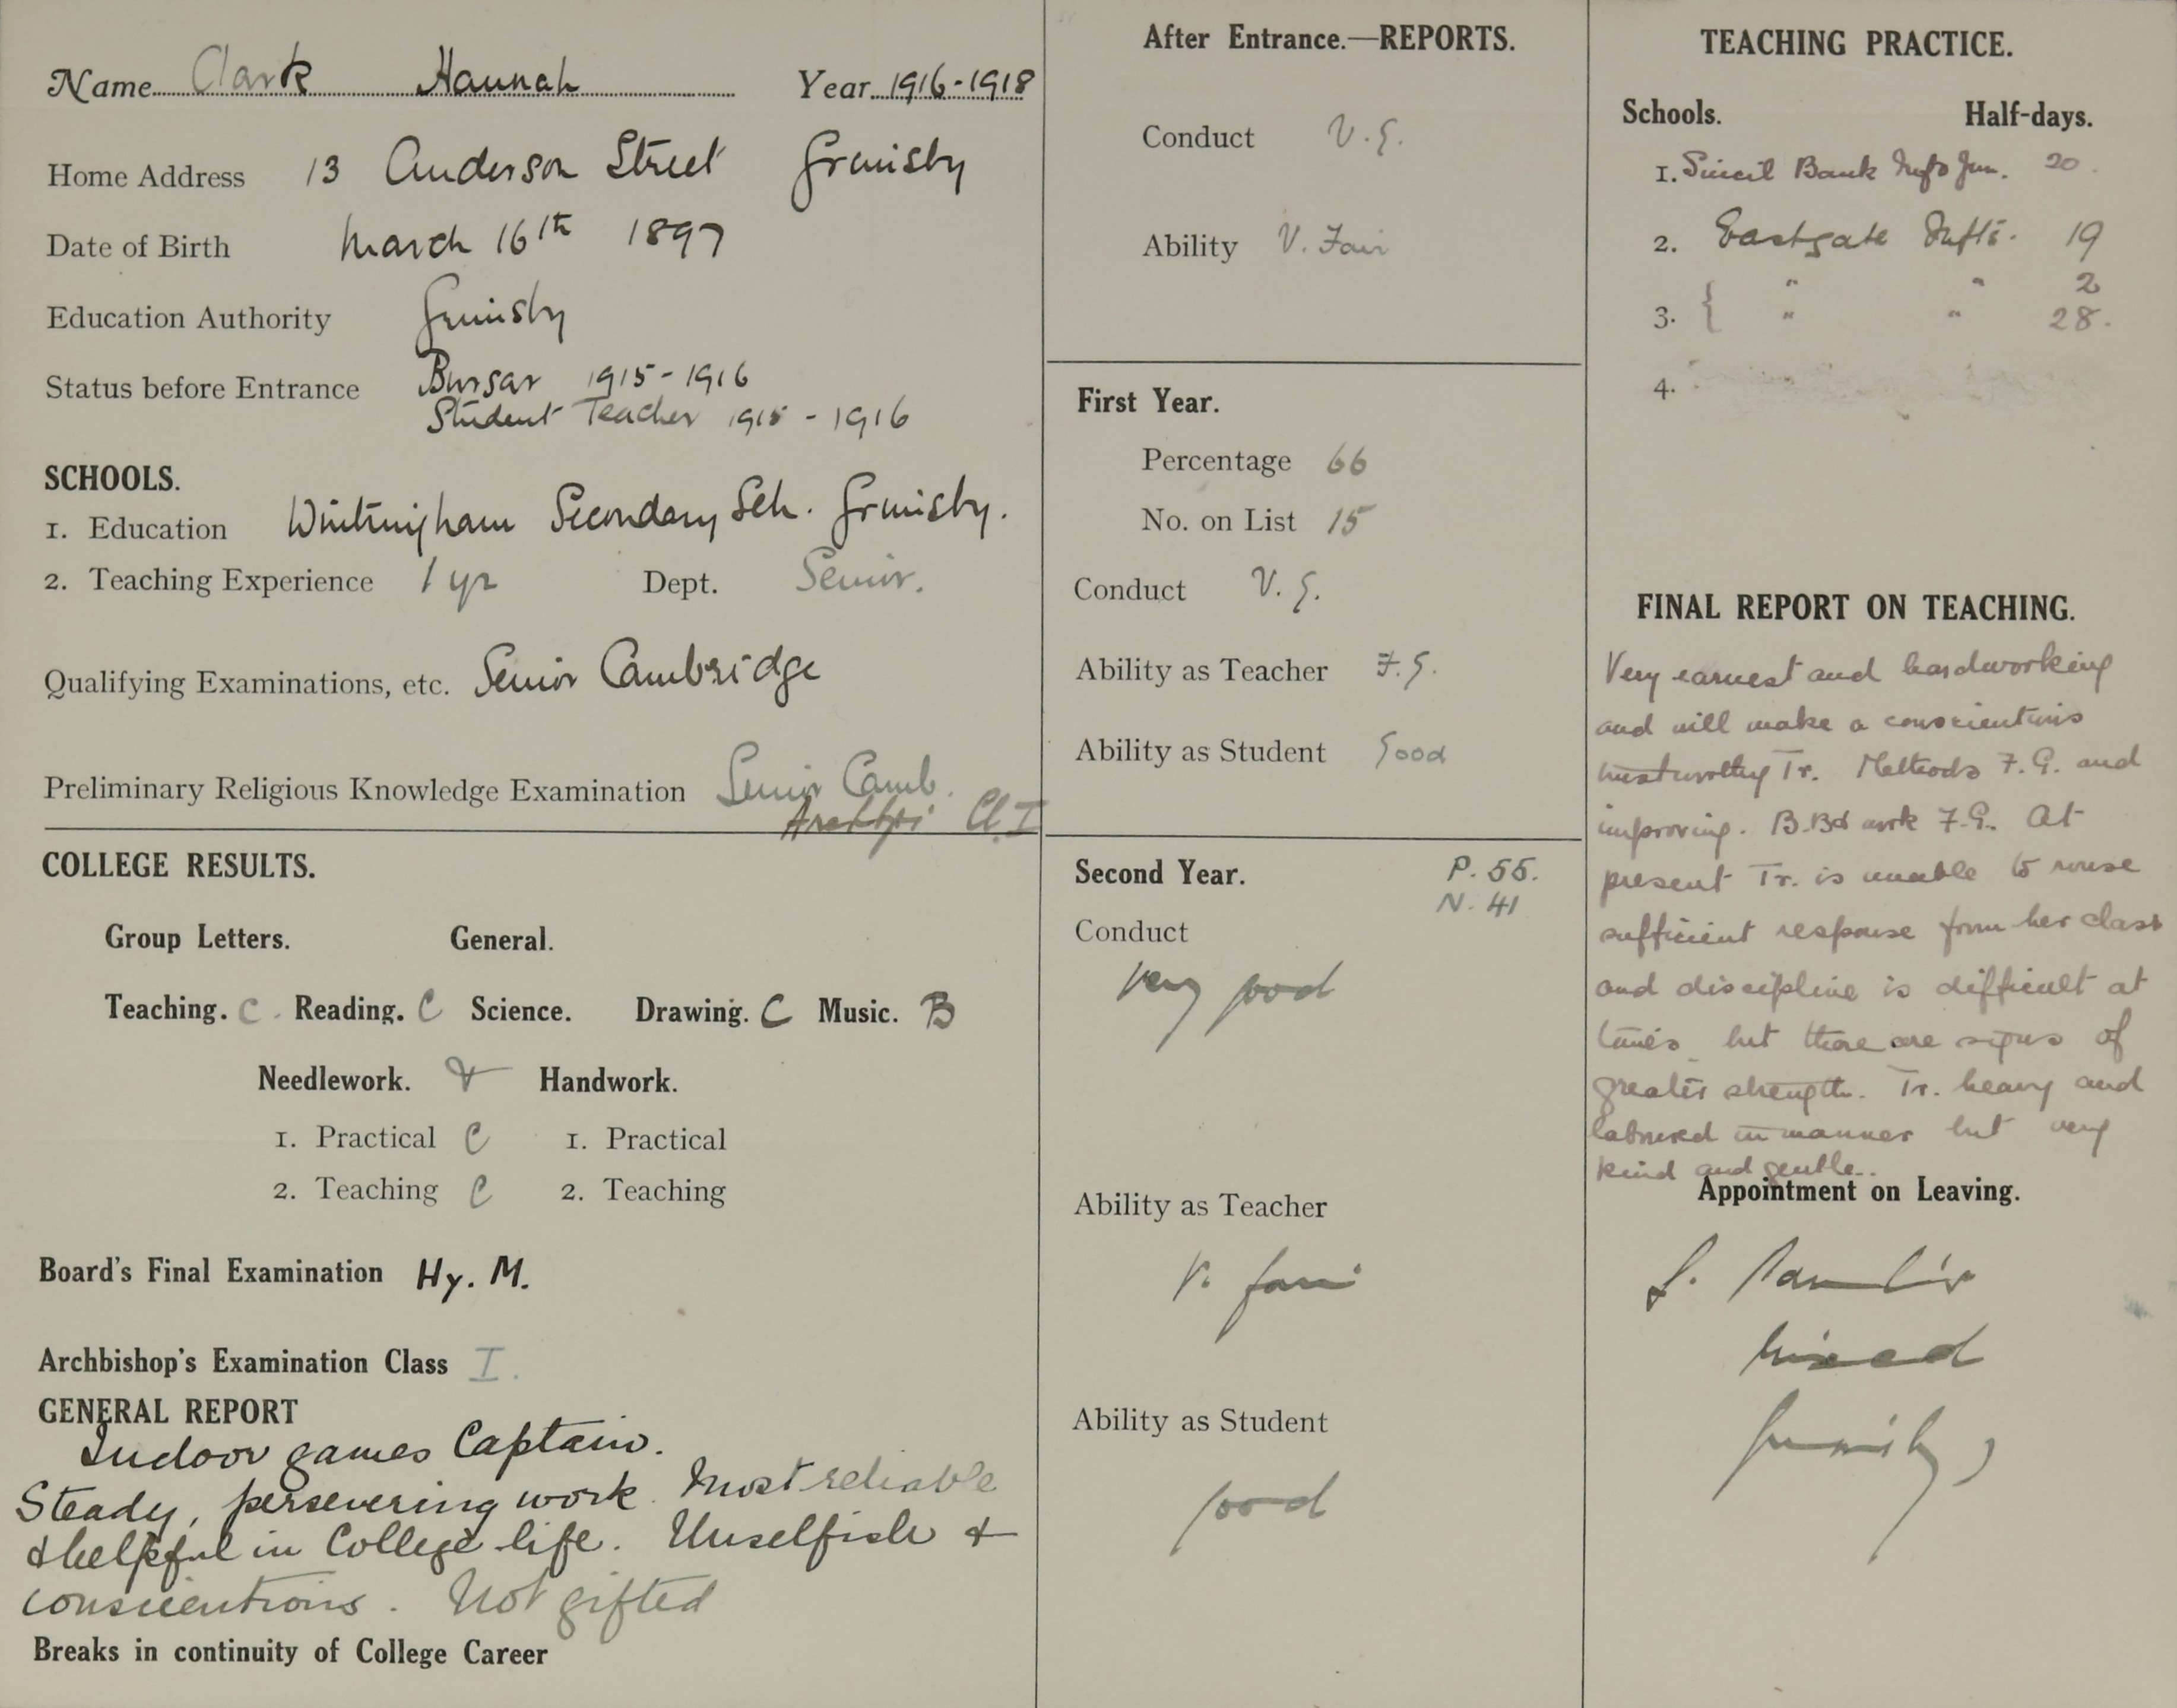 Name Clark Hannah Year 1916-1918
Home Address 13 Anderson Street Grimsby
Date of Birth March 16th 1897
Education Authority Grimsby
Status before Entrance Bursar 1915-1916
Student Teacher 1915-1916
SCHOOLS.
1. Education Wintringham Secondary Sch. Grimsby.
2. Teaching Experience 1 yr Dept. Senior.
Qualifying Examinations, etc. Senior Cambridge
Preliminary Religious Knowledge Examination Senior Camb.
Archbps Cl. I
COLLEGE RESULTS.
Group Letters. General.
Teaching. C. Reading. C Science. Drawing. C Music. B
Needlework. & Handwork.
1. Practical C 1. Practical
2. Teaching C 2. Teaching
Board's Final Examination Hy. M.
Archbishop's Examination Class I.
GENERAL REPORT
Indoor games Captain.
Steady, persevering work. Most reliable
& helpful in College life. Unselfish &
conscientious. Not gifted
Breaks in continuity of College Career
After Entrance.—REPORTS.
Conduct V.G.
Ability V. Fair
First Year.
Percentage 66
No. on List 15
Conduct V.G.
Ability as Teacher F.G.
Ability as Student Good
Second Year. P. 55.
N. 41
Conduct
Very good
Ability as Teacher
V. fair
Ability as Student
good
TEACHING PRACTICE.
Schools. Half-days.
1. Sincil Bank Infts Jun. 20.
2. Eastgate Infts. 19
" " 2
3. { " " 28.
4.
FINAL REPORT ON TEACHING.
Very earnest and hardworking
and will make a conscientious
trustworthy Tr. Methods F.G. and
improving. B.Bd work F.G. At
present Tr. is unable to rouse
sufficient response from her class
and discipline is difficult at
times but there are signs of
greater strength. Tr. heavy and
laboured in manner but very
kind and gentle..
Appointment on Leaving.
Mixed
Grimsby